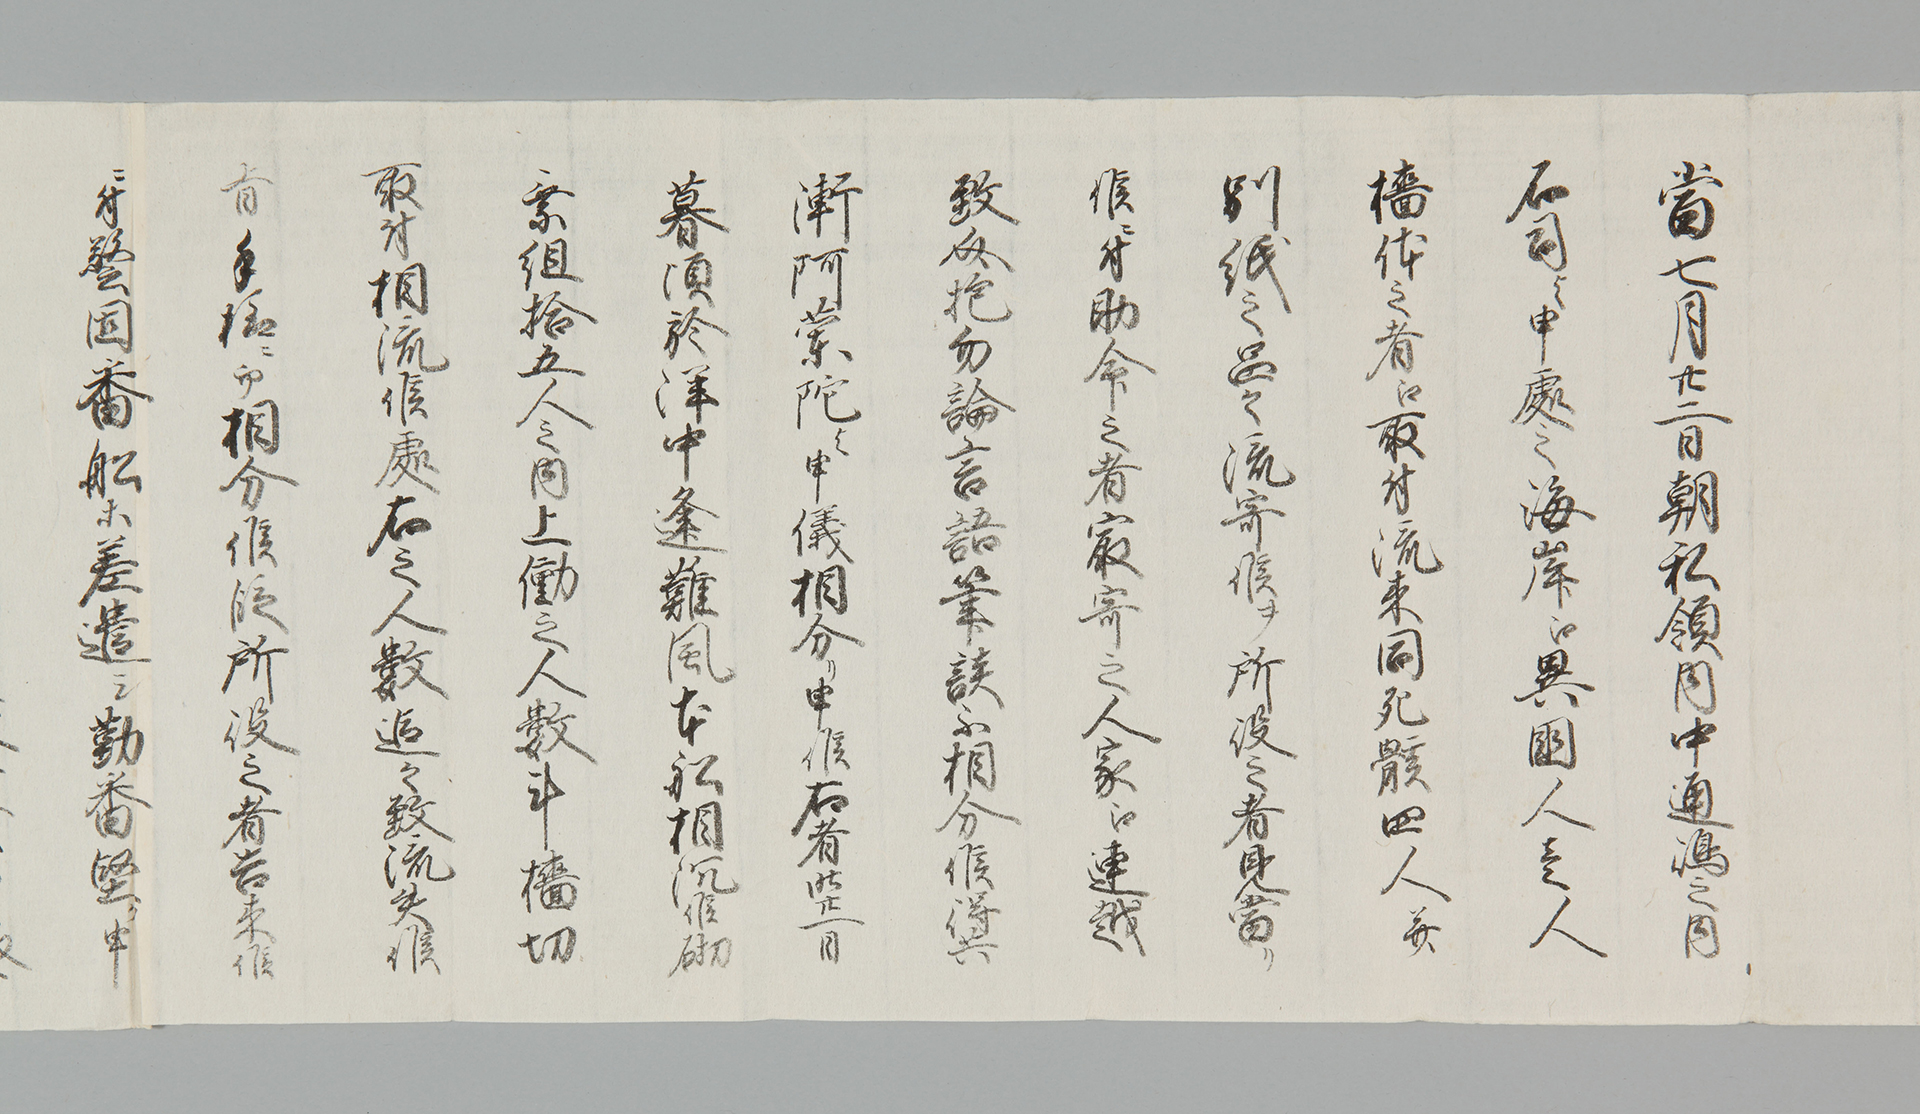 當七月廿二日朝私領内中通嶋之内
石司与申處之海岸江異國人壱人
檣体之者江取付流来同死骸四人并
別紙之品々流寄候ヲ所役之者見當り
候ニ付助命之者最寄之人家江連越
致介抱勿論言語筆談不相分候得共
漸阿蘭陀与申儀相分り申候右者此一日
暮頃於洋中逢難風本舩相沉候砌
乗組拾五人之内上働之人数斗檣切
取付相流候處右之人数追々致流失候
旨手様ニ而相分候段所役之者告来候
ニ付警固番舩等差遣シ勤番堅申